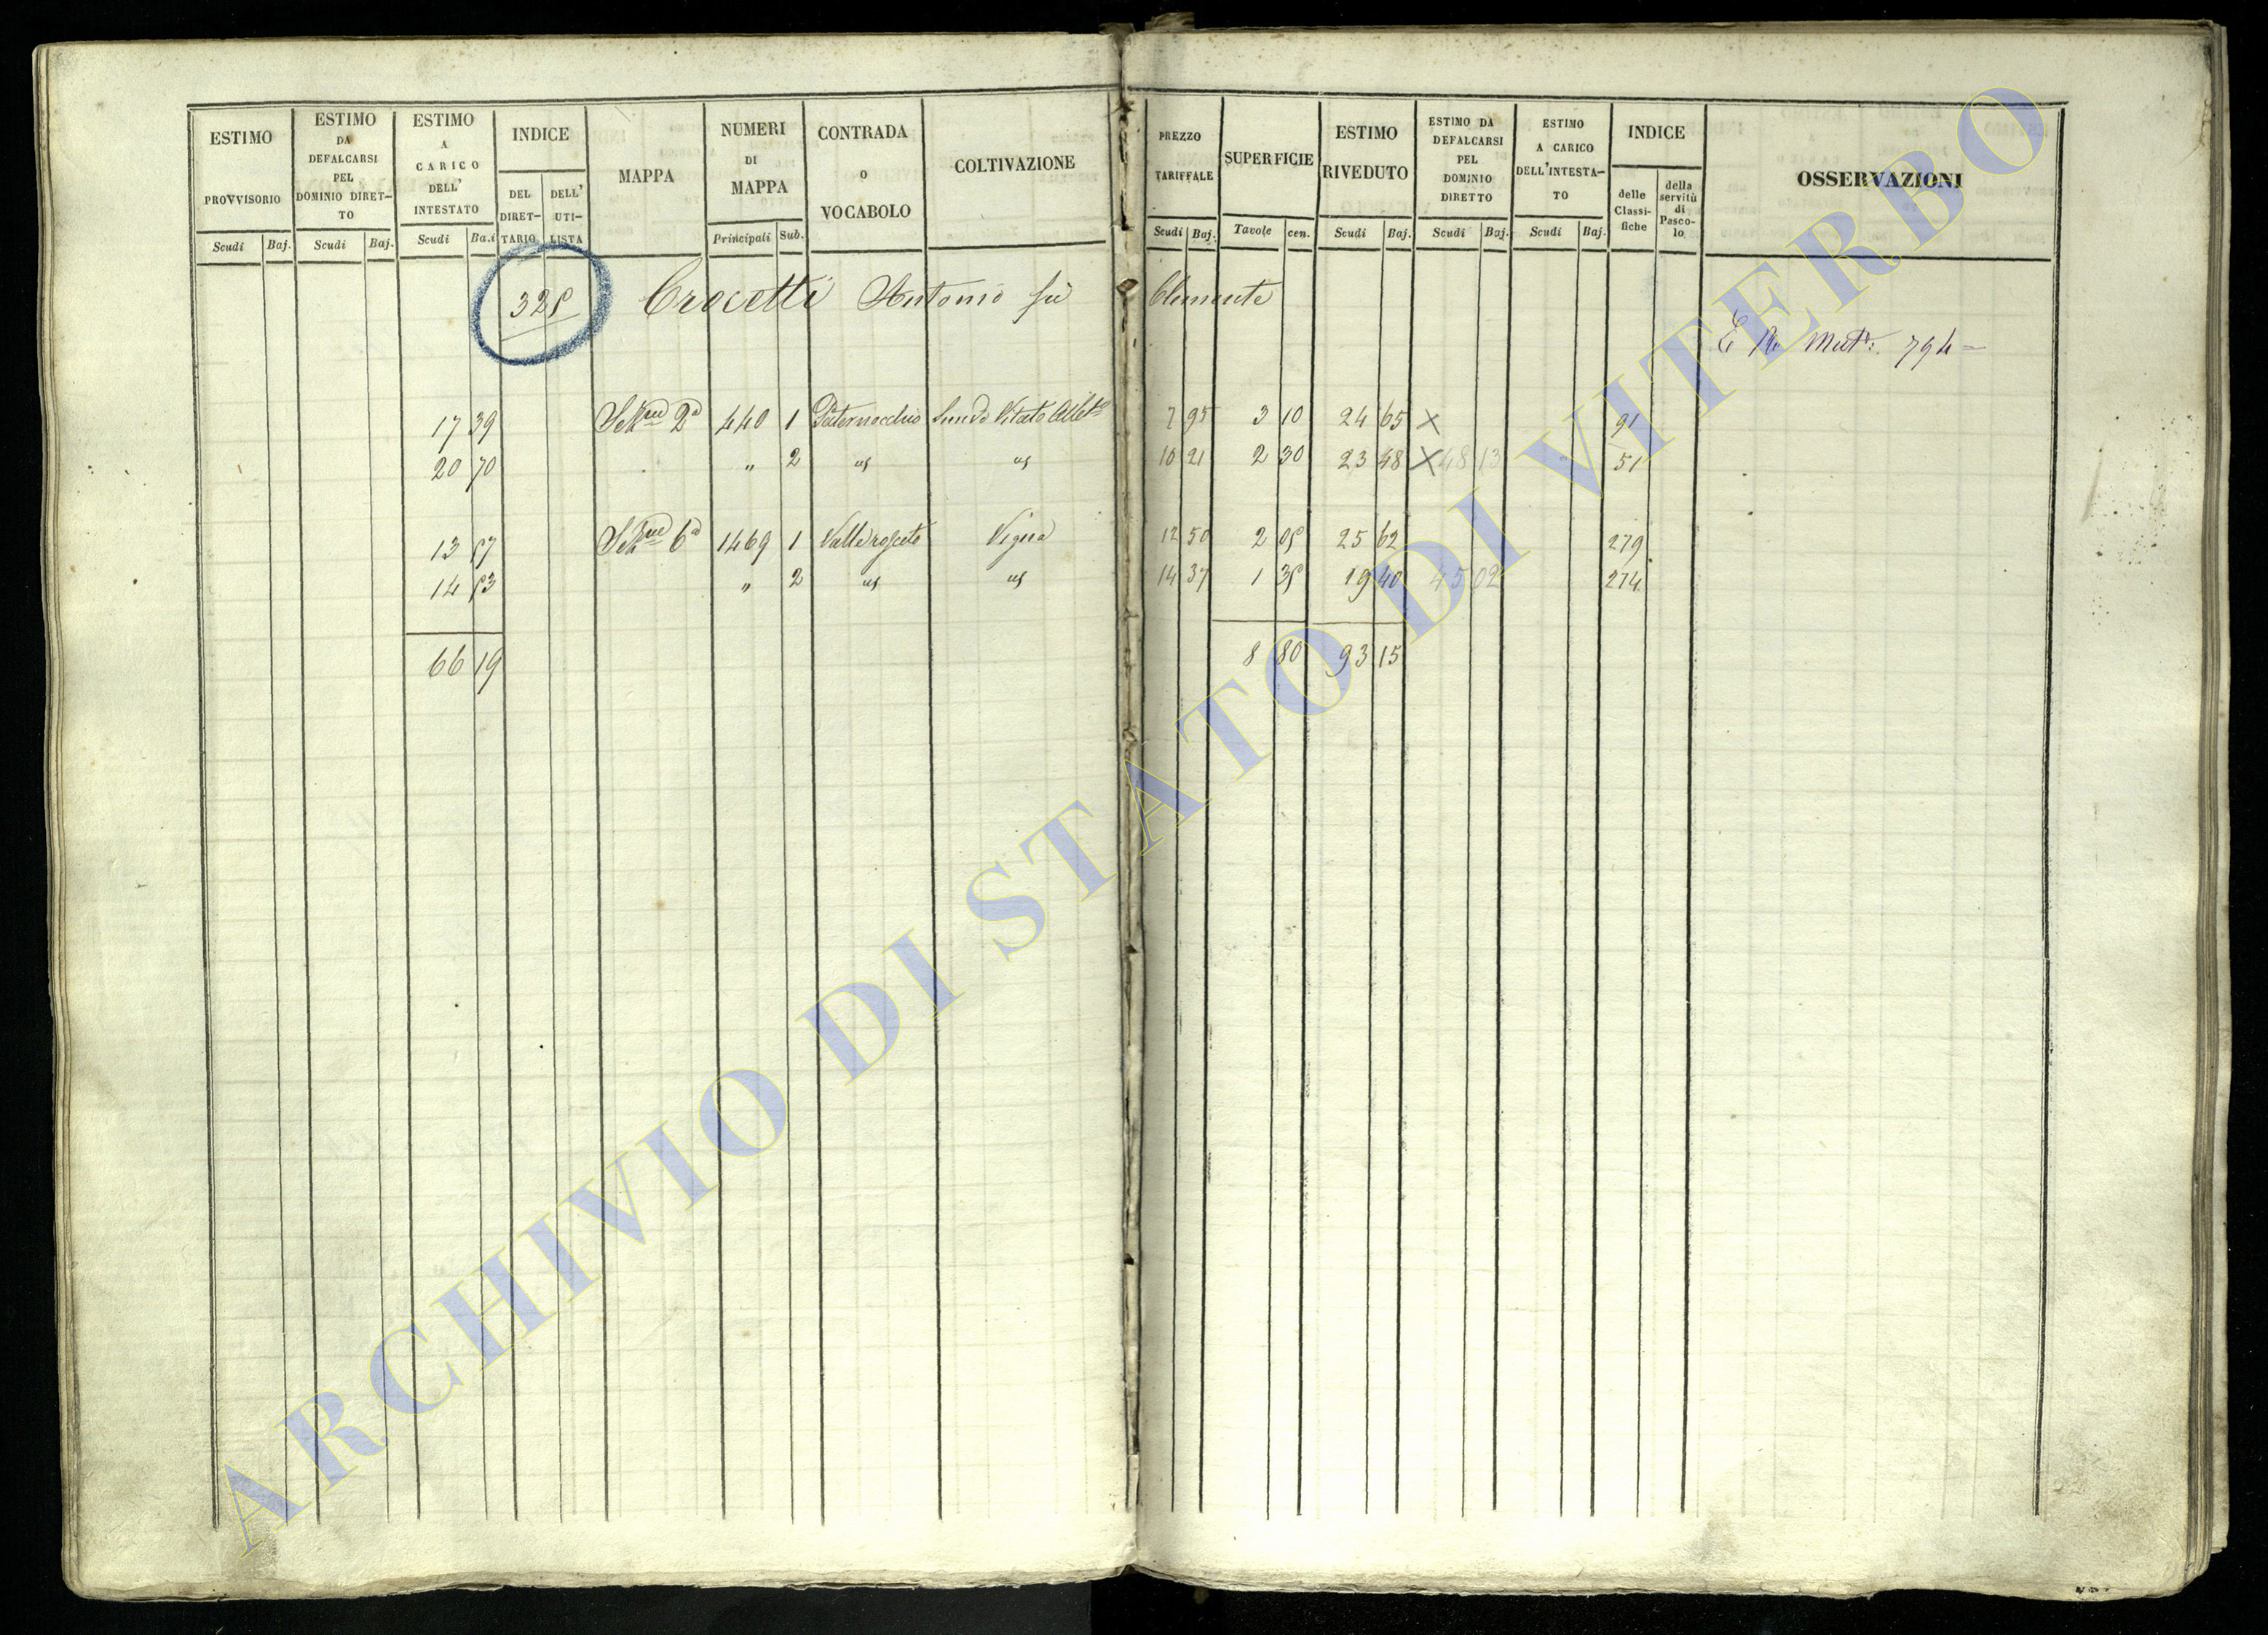 ESTIMO PROVVISORIO
ESTIMO DA DEFALCARSI PEL DOMINIO DIRET-TO
ESTIMO A CARICO DELL' INTESTATO
INDICE
DEL DIRET-TARIO
DELL' UTI-LISTA
MAPPA
NUMERI DI MAPPA
CONTRADA O VOCABOLO
COLTIVAZIONE
PREZZO TARIFFALE
SUPERFICIE
ESTIMO RIVEDUTO
ESTIMO DA DEFALCARSI PEL DOMINIO DIRETTO
ESTIMO A CARICO DELL'INTESTA-TO
INDICE
delle Classi-fiche
della servitù di Pasco-lo
OSSERVAZIONI
Scudi Baj. Scudi Baj. Scudi Ba.i Principali Sub. Scudi Baj. Tavole cen. Scudi Baj. Scudi Baj. Scudi Baj.
325 Crocetti Antonio fu Clemente
794=
17 39 2a 440 1 Paternocchio Vitato 7 95 3 10 24 65 X 91
20 70 " 2 us us 10 21 2 30 23 48 X 48 13 51
13 57 6a 1469 1 Vigna 12 50 2 05 25 62 279
14 53 " 2 us us 14 37 1 35 19 40 45 02 274
66 19 8 80 93 15
ARCHIVIO DI STATO DI VITERBO